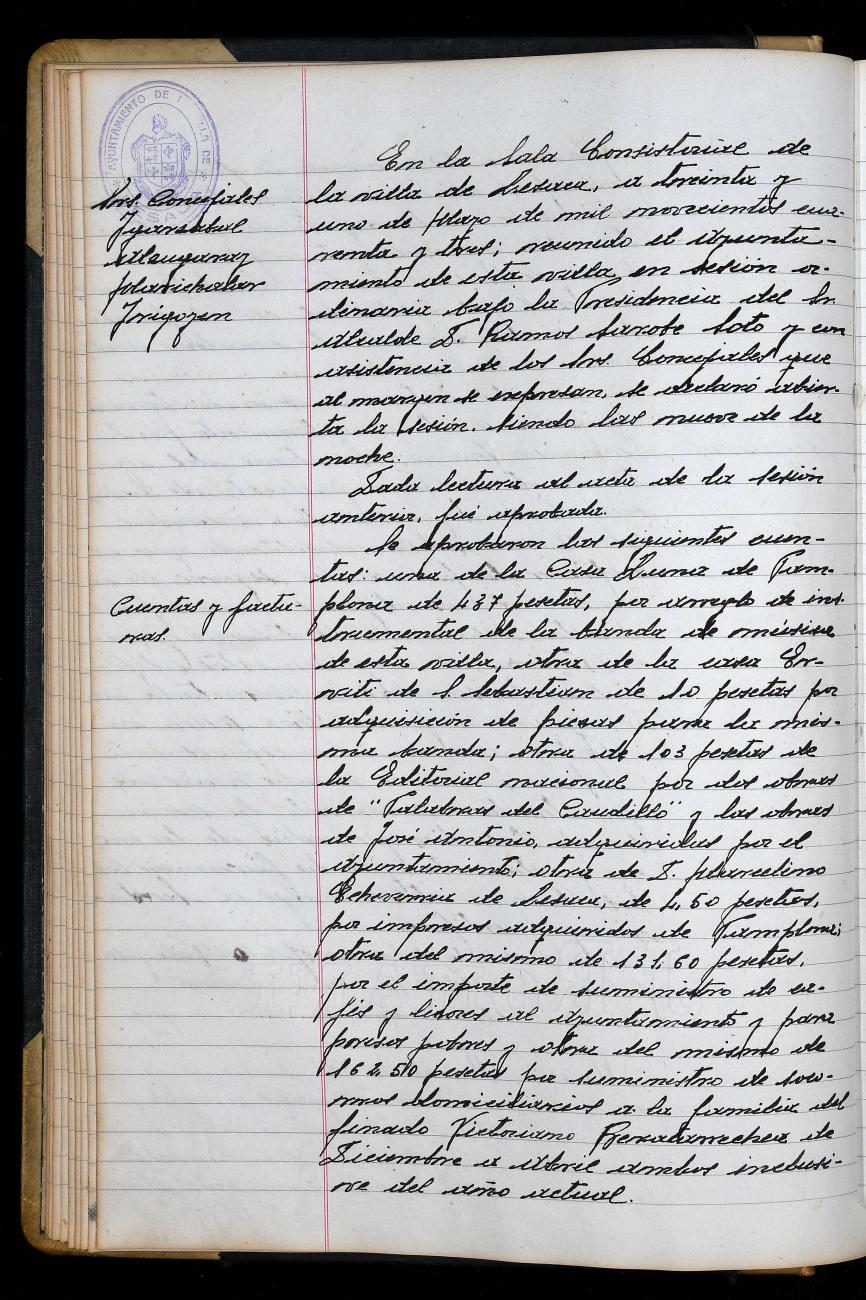 AYUNTAMIENTO DE LA VILLA DE
Srs. Concejales
Ygarzabal
Alzugaray
Irigoyen
Cuentas y factu-
ras.
En la Sala Consistorial de
la villa de Lesaca, a treinta y
uno de Mayo de mil novecientos cua-
renta y tres; reunido el Ayunta-
miento de esta villa en sesión or-
dinaria bajo la Presidencia del Sr
Alcalde D. Ramos Sarobe Soto y con
asistencia de los Srs. Concejales que
al margen se expresan, se declaró abier-
ta la sesión. Siendo las nueve de la
noche.
Dada lectura al acta de la sesión
anterior, fué aprobada.
Se aprobaron las siguientes cuen-
tas: una de la Casa Luna de Pam-
plona de 437 pesetas, por arreglo de ins-
trumental de la banda de música
de esta villa, otra de la casa Er-
viti de S. Sebastian de 10 pesetas por
adquisición de piezas para la mis-
ma banda; otra de 103 pesetas de
la Editorial nacional por dos obras
de "Palabras del Caudillo" y las obras
de José Antonio, adquiridas por el
Ayuntamiento; otra de D. Marcelino
Echeverria de Lesaca, de 4,50 pesetas,
por impresos adquiridos de Pamplona;
otra del mismo de 131,60 pesetas,
por el importe de suministro de ca-
fés y licores al Ayuntamiento y para
presos pobres y otra del mismo de
162,50 pesetas por suministro de soco-
rros domiciliarios a la familia del
finado Victoriano de
Diciembre a Abril ambos inclusi-
ve del año actual.